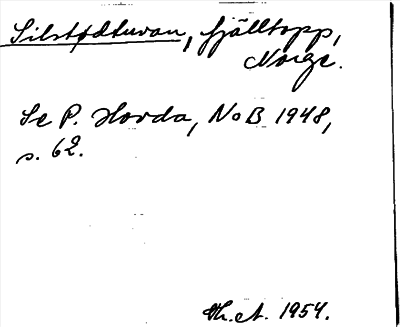 Silstødtuvan, fjälltopp,
Norge.
Se P. Hovda, NoB 1948,
s. 62.
Th.A. 1954.